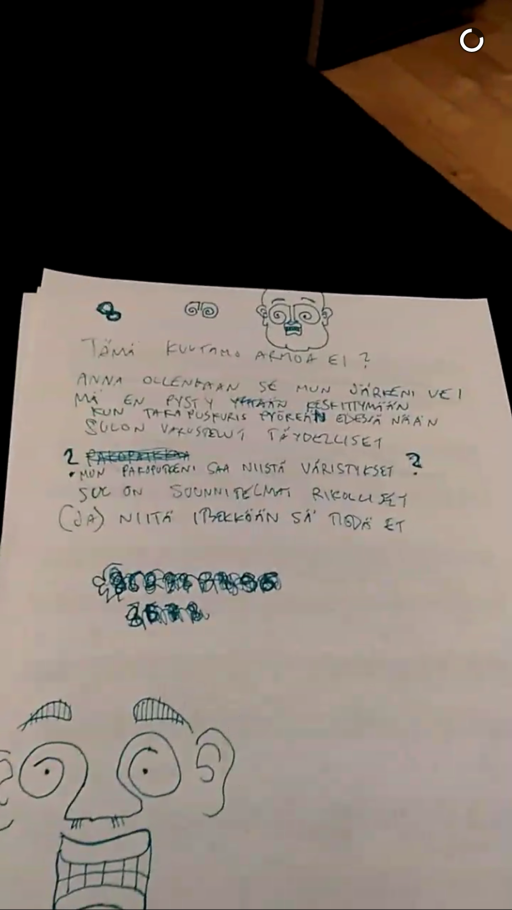 TÄMÄ KUUTAMO ARMOA EI?
ANNA OLLENKAAN SE MUN JÄRKENI VEI
MÄ EN PYSTY KESKITTYMÄÄN
KUN TAKAPUSKURIS PYÖREÄN EDESSÄ NÄÄN
SULON VARUSTELUT TÄYDELLISET
2 ?
MUN PAKOPUTKENI SAA NIISTÄ VÄRISTYKSET
SUL ON SUUNNITELMAT RIKOLLISET
(JA) NIITÄ ITSEKKÄÄN SÄ TIEDÄ ET